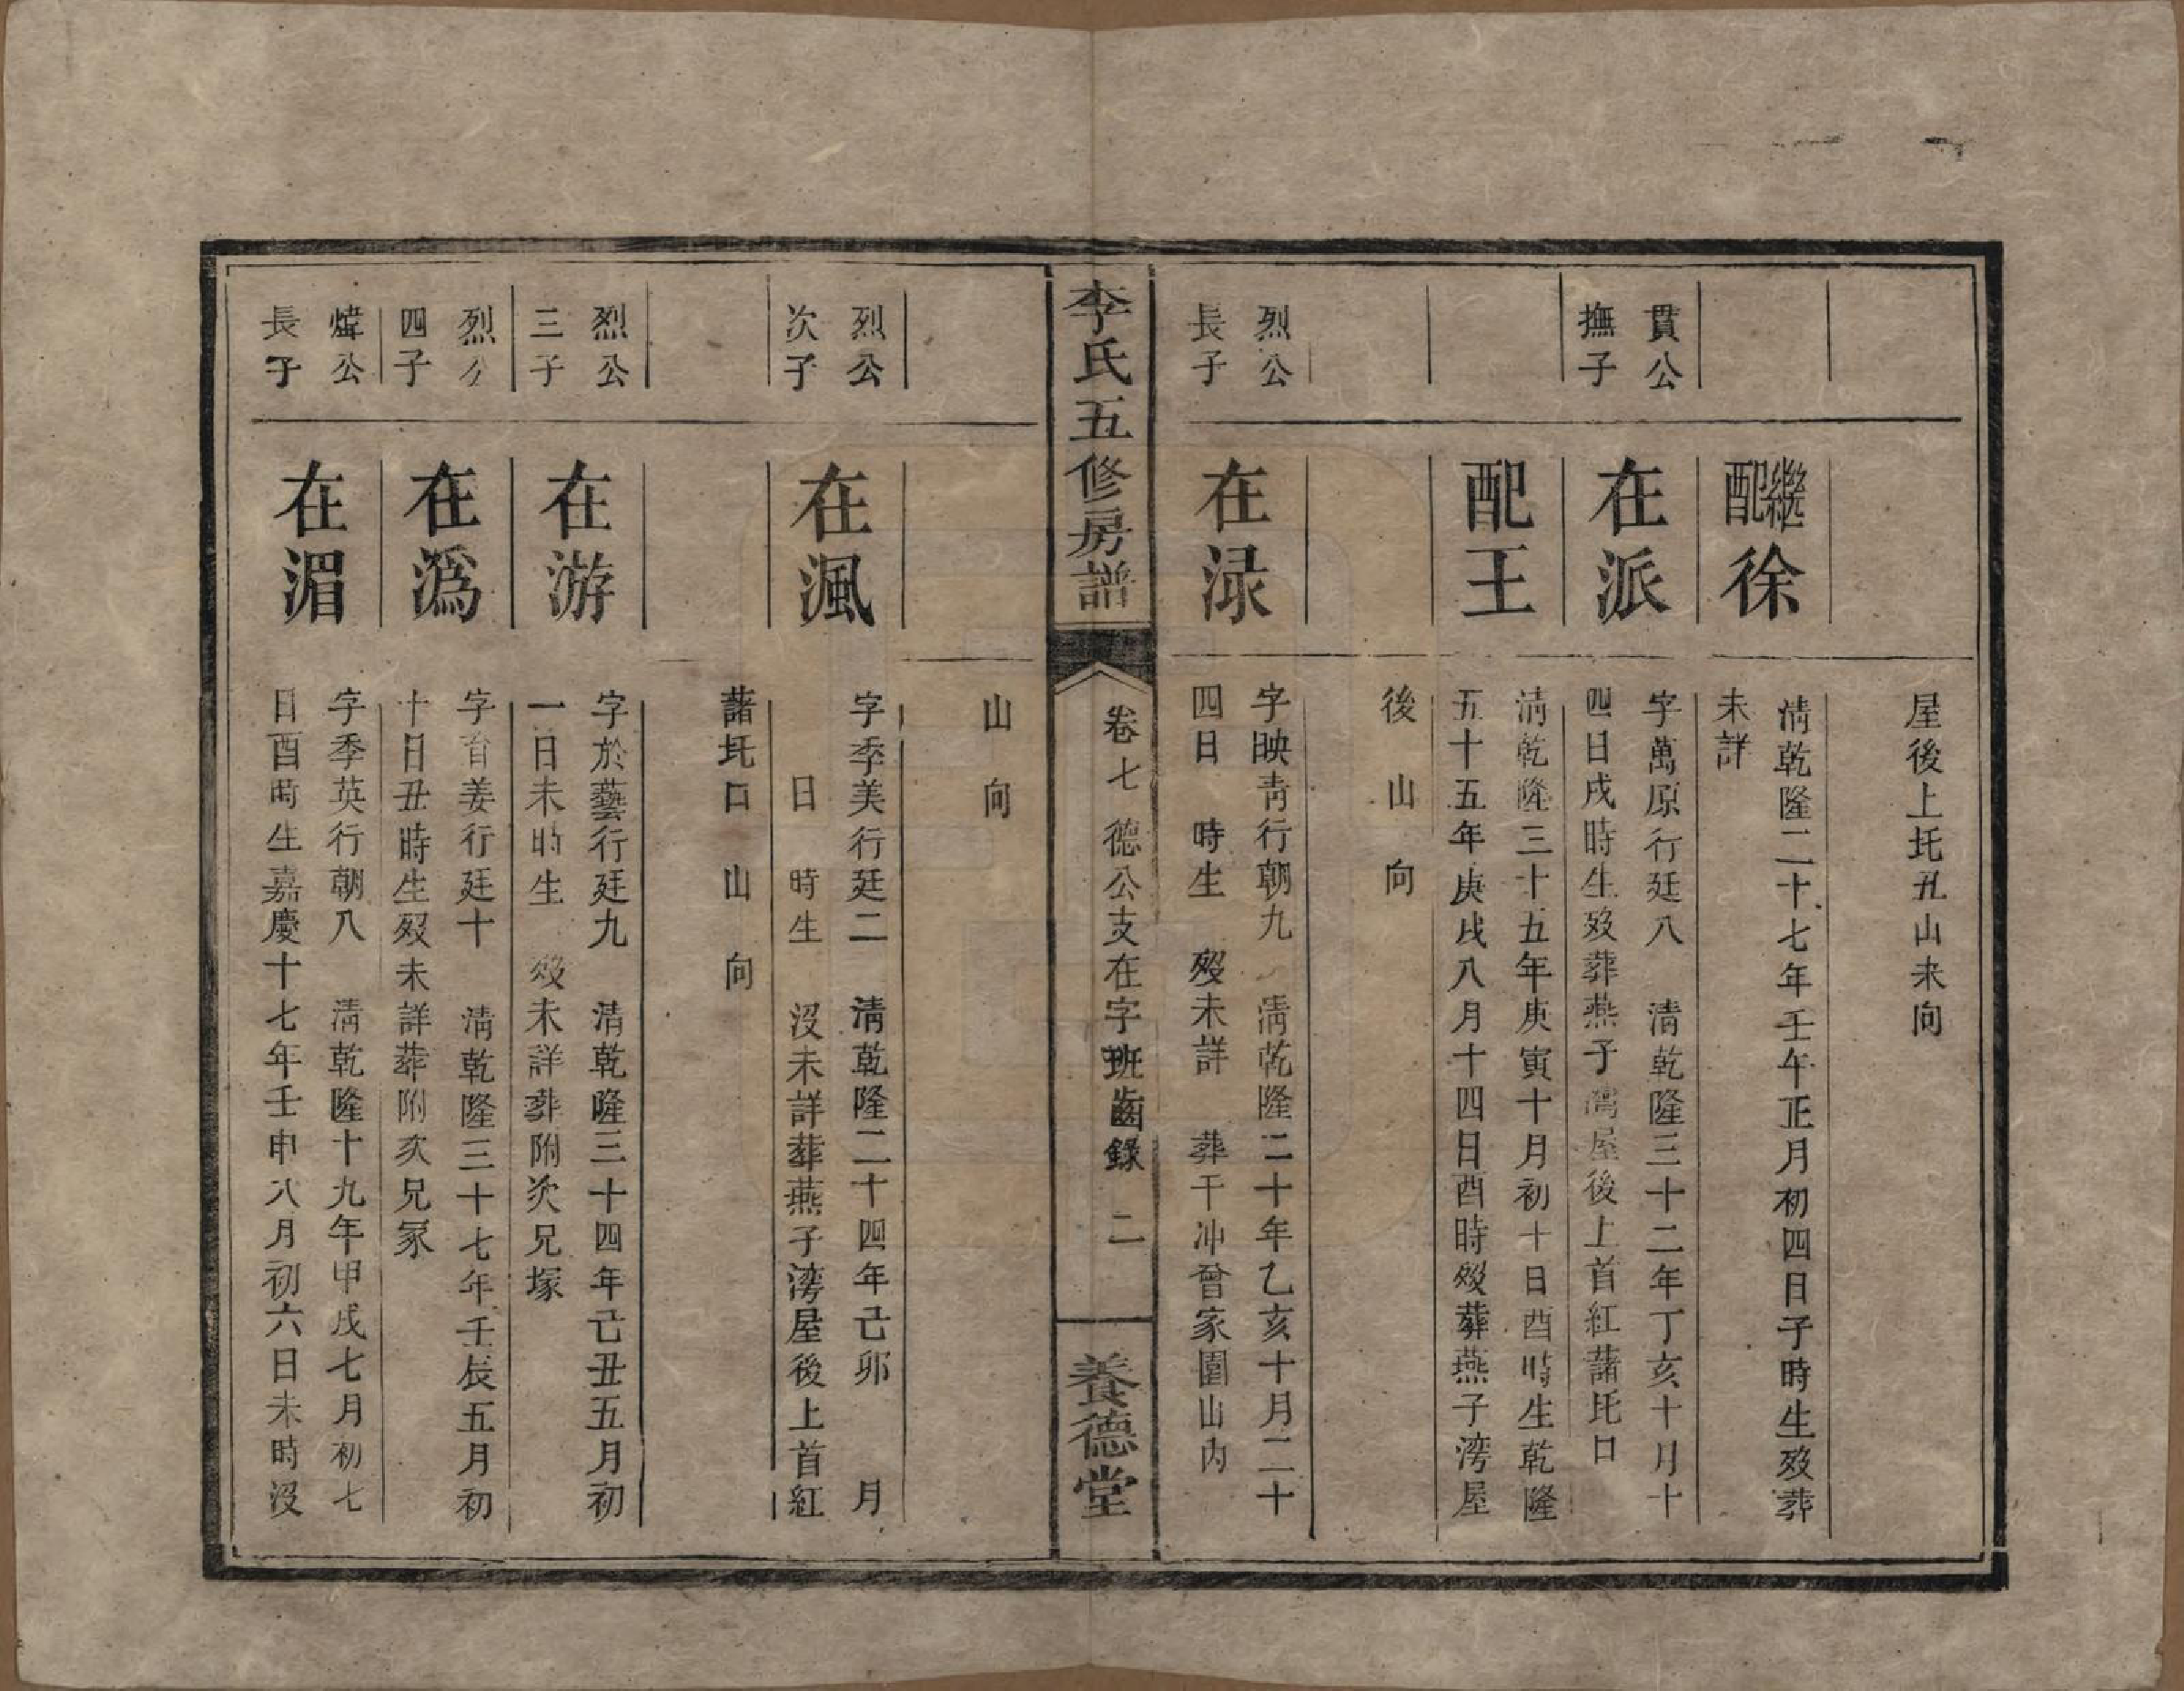 屋後上坵丑山未向
繼配徐
清乾隆二十七年壬午正月初四日子時生歿葬
未詳
貫公
撫子
在派
字萬原行廷八 清乾隆三十二年丁亥十月十
四日戌時生歿葬燕子灣屋後上首紅藷坵口
配王
清乾隆三十五年庚寅十月初十日酉時生乾隆
五十五年庚戌八月十四日酉時歿葬燕子湾屋
後 山 向
烈公
長子
在渌
字映青行朝九 清乾隆二十年乙亥十月二十
四日 時生 歿未詳 葬干冲曾家園山内
李氏五修房譜
卷七 德公支在字班齒錄 二
養德堂
山 向
烈公
次子
在渢
字季美行廷二 清乾隆二十四年己卯 月
日 時生 沒未詳葬燕子湾屋後上首紅
藷坵口 山 向
烈公
三子
在游
字於藝行廷九 清乾隆三十四年己丑五月初
一日未時生 歿未詳葬附次兄塚
烈公
四子
在溈
字首姜行廷十 清乾隆三十七年壬辰五月初
十日丑時生歿未詳葬附次兄冢
煒公
長子
在湄
字季英行朝八 清乾隆十九年甲戌七月初七
日酉時生嘉慶十七年壬申八月初六日未時沒